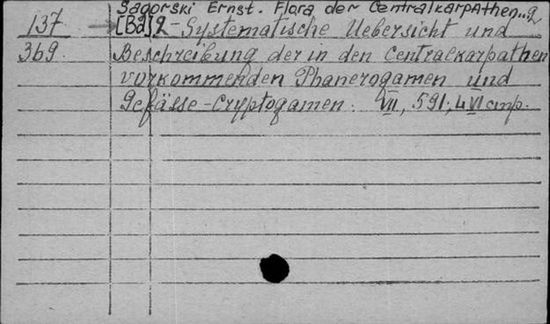 Sagorski Ernst. Flora der Centralkarpathen...2
137 [Bd] 2 - Systematische Uebersicht und
369. Beschreibung der in den Centralkarpathen
vorkommenden Phanerogamen und
Gefässe-Cryptogamen. VII, 591, 4 VI cmp.